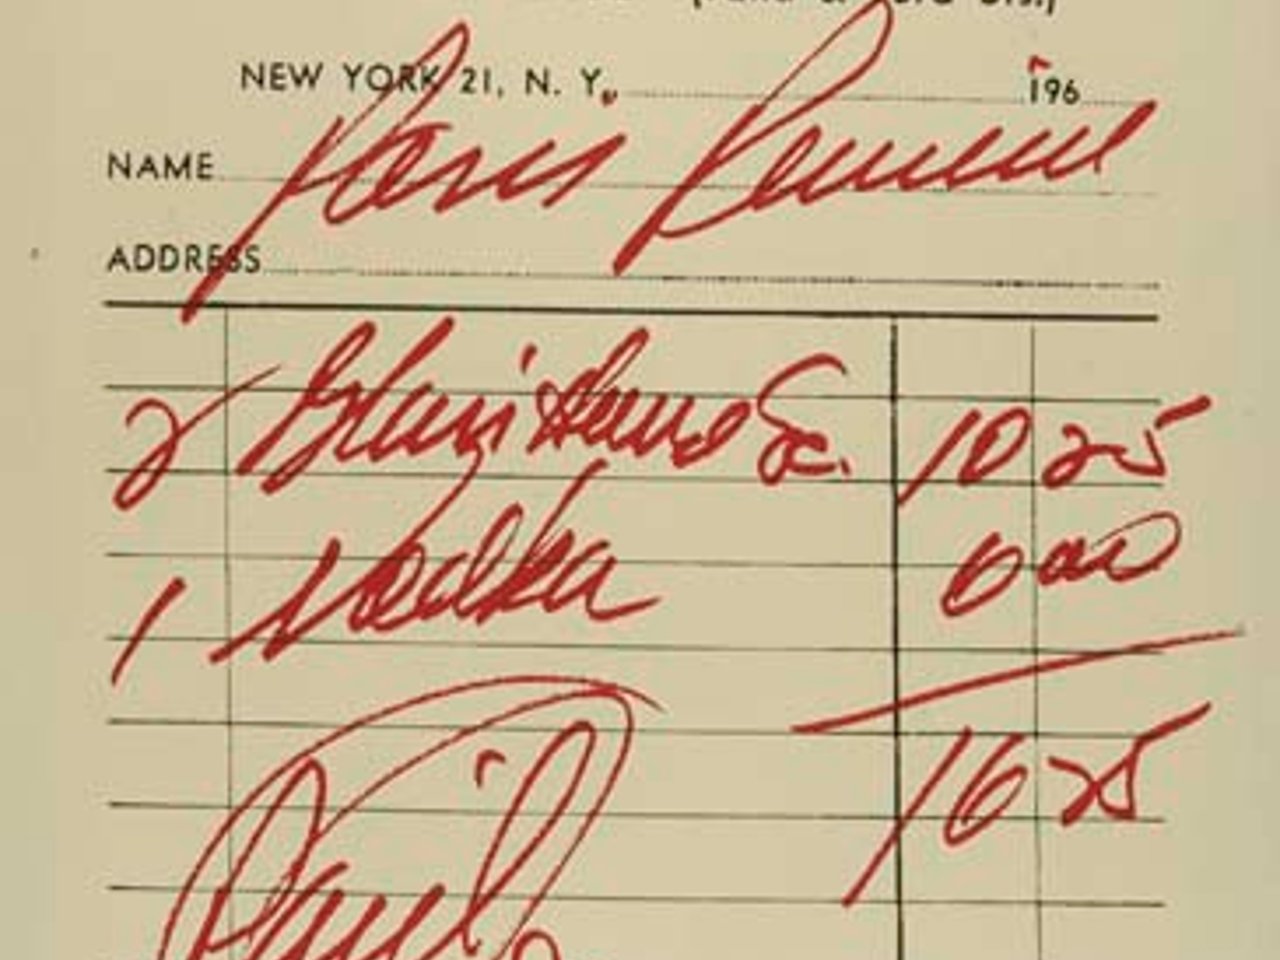 NEW YORK 21, N. Y. 196
NAME Paris Review
ADDRESS
2 Scc. 10 25
1 Vodka 6 00
16 25
Paid